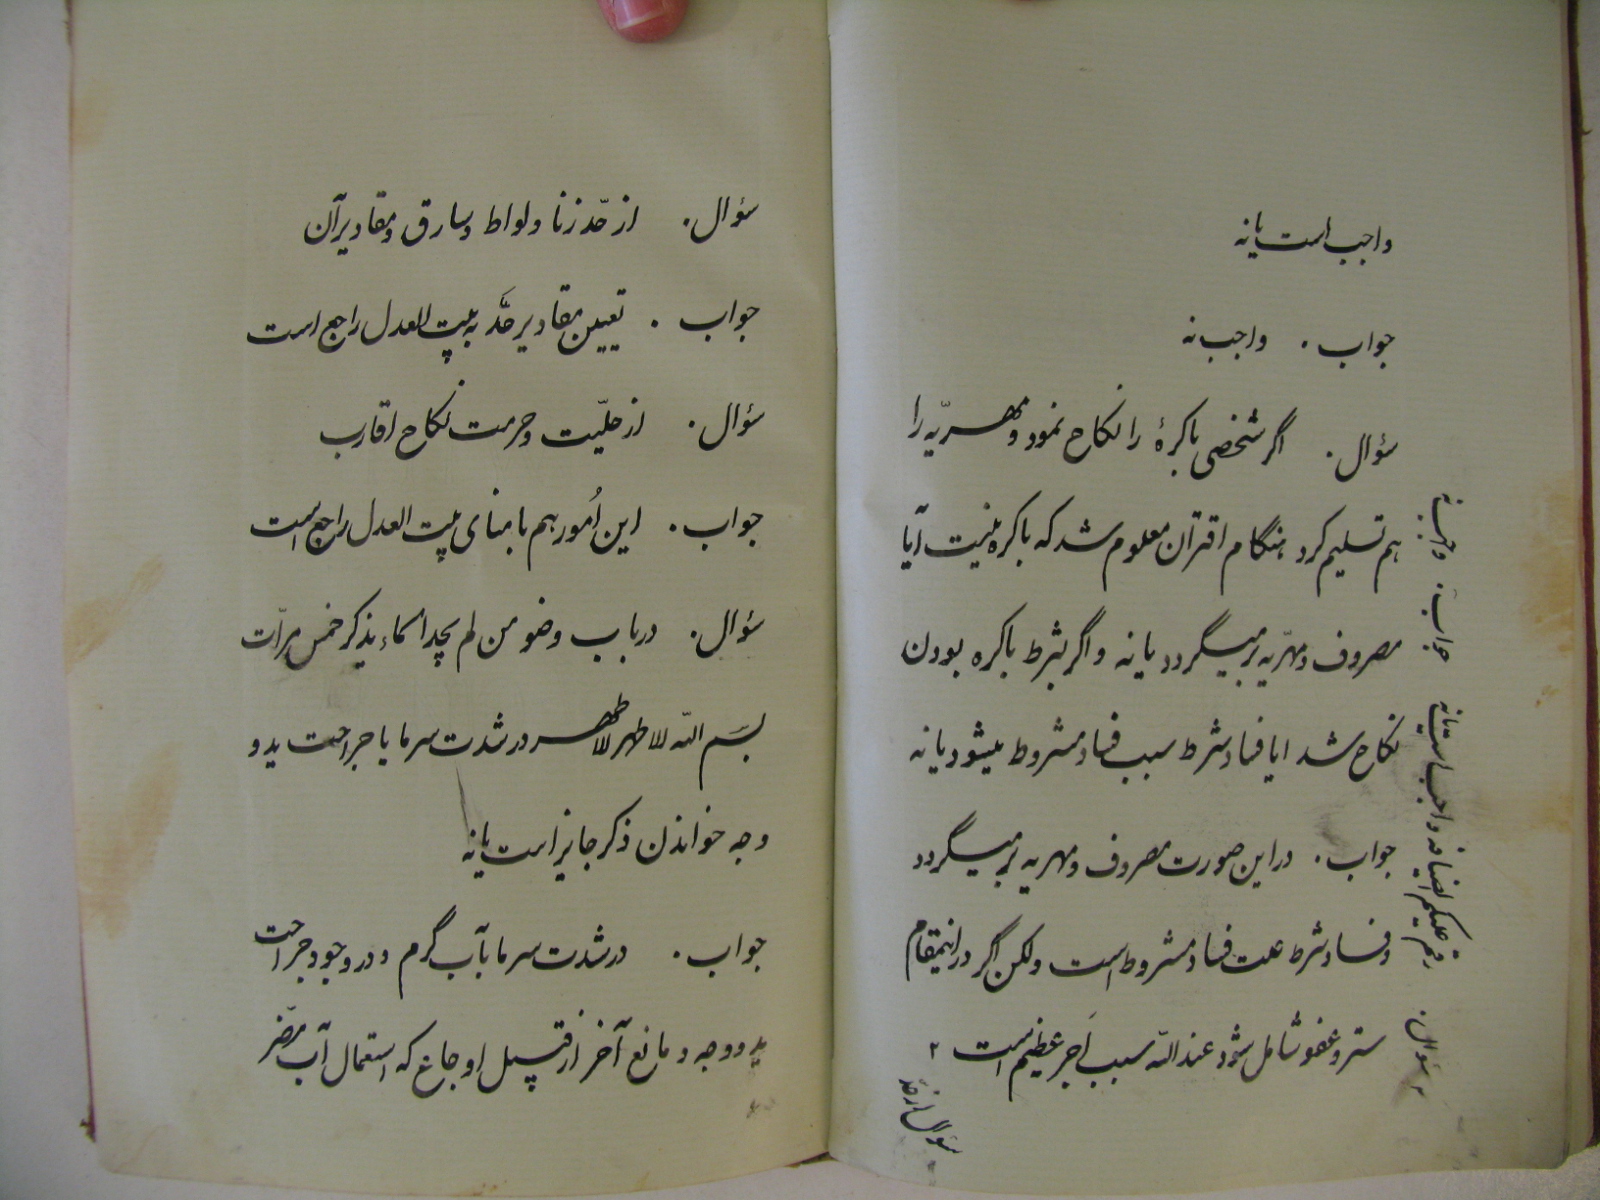 واجب است یا نه
جواب . واجب نه
سؤال . اگر شخصی باکرهٔ را نکاح نمود و مهریّه را
هم تسلیم کرد هنگام اقتران معلوم شد که باکره نیست آیا
مصروف و مهرّیه بر میگردد یا نه و اگر بشرط باکره بودن
نکاح شد ایا فساد شرط سبب فساد مشروط میشود یا نه
جواب . در این صورت مصروف و مهریه بر میگردد
و فساد شرط علت فساد مشروط است ولکن اگر در اینمقام
ستر و عفو شامل شود عند اللّه سبب اَجر عظیم است ۲
۲ سؤال . رقم علیکم اضیافه واجب است یا نه جواب . واجب نه
سؤال از حدّ
سؤال . از حّد زنا و لواط و سارق و مقادیر آن
جواب . تعیین مقادیر حَّد به بیت العدل راجع است
سؤال . از حلیّت و حرمت نکاح اقارب
جواب . این اُمور هم بامنای بیت العدل راجع است
سؤال . در باب وضو من لم یجد الماء یذکر خمس مرّات
بسم اللّه الاطهر الاطهر در شدت سرما یا جراحت ید و
وجه خواندن ذکر جایز است یا نه
جواب . در شدت سرما بآب گرم و در وجود جراحت
ید و وجه و مانع آخر از قبیل اوجاع که استعمال آب مضّر